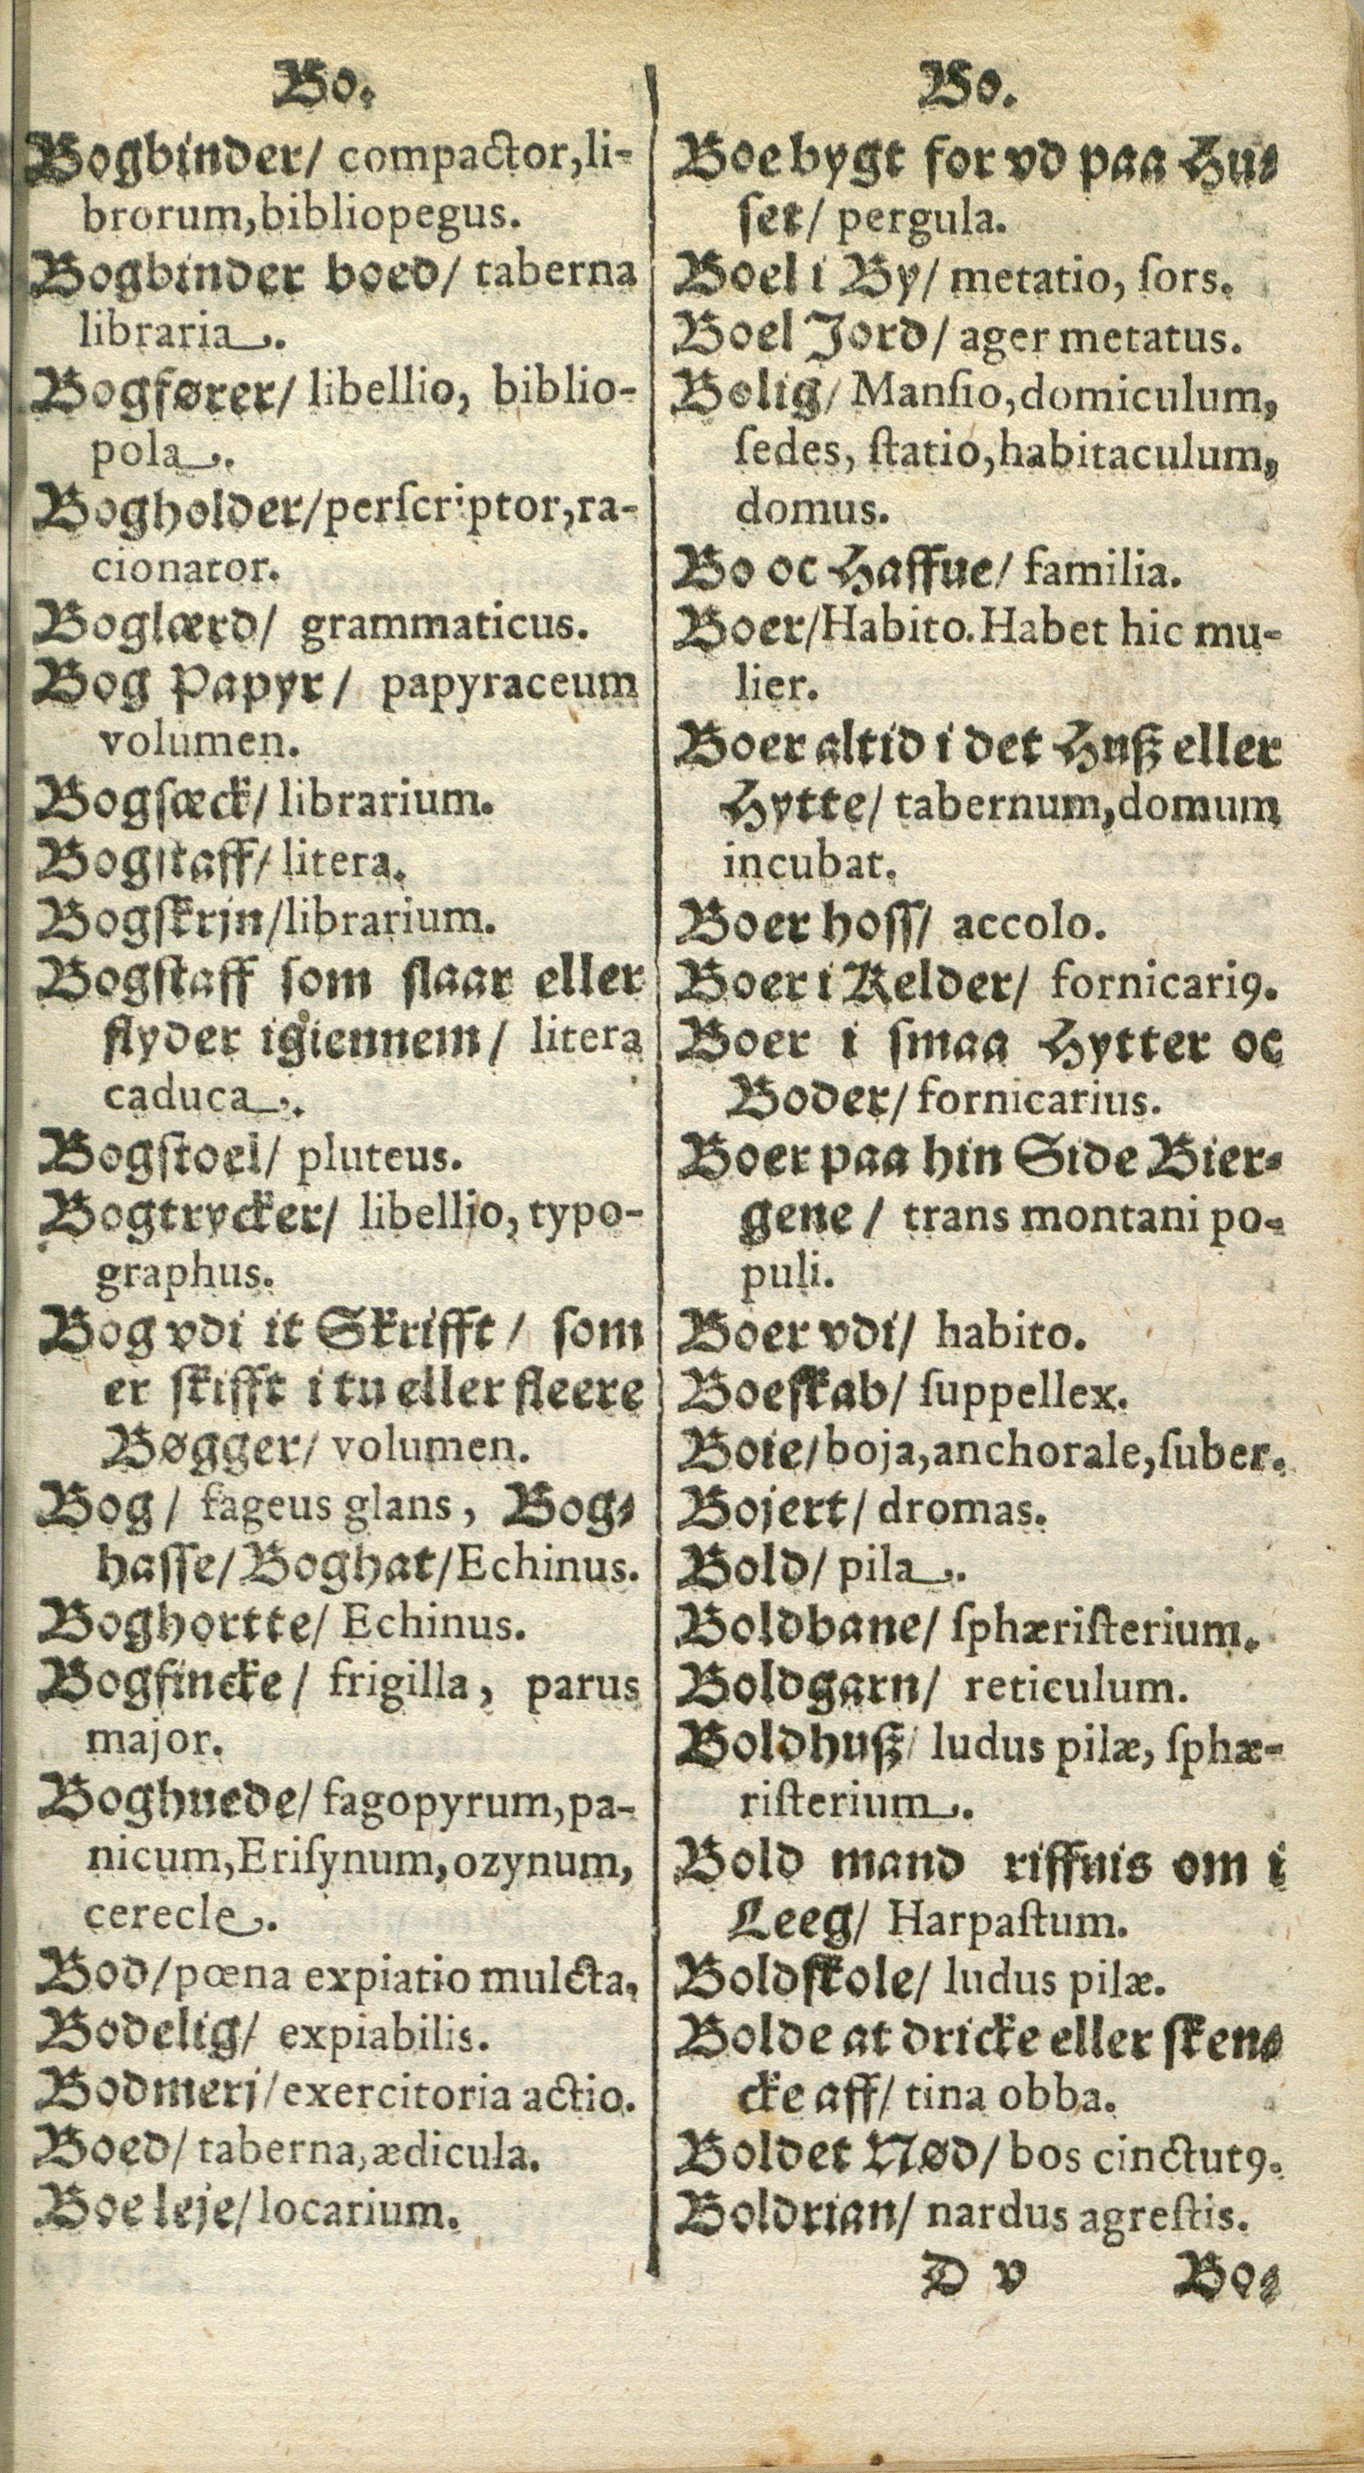 Bo.
Bogbinder/ compactor,li-
brorum,bibliopegus.
Bogbinder boed/ taberna
libraria.
Bogfører/ libellio, biblio-
pola.
Bogholder/perſcriptor,ra-
cionator.
Boglærd/ grammaticus.
Bog Papyr/ papyraceum
volumen.
Bogſæck/ librarium.
Bogſtaff/ litera.
Bogſkrin/librarium.
Bogſtaff ſom ſlaar eller
flyder igiennem/ litera
caduca.
Bogſtoel/ pluteus.
Bogtrycker/ libellio, typo-
graphus.
Bog vdi it Skrifft/ ſom
er ſkifft i tu eller fleere
Bøgger/ volumen.
Bog/ fageus glans, Bog-
haſſe/Boghat/Echinus.
Boghortte/ Echinus.
Bogfincke/ frigilla, parus
major.
Boghuede/ fagopyrum,pa-
nicum,Eriſynum,ozynum,
cerecle.
Bod/pœna expiatio mulcta,
Bodelig/ expiabilis.
Bodmerj/exercitoria actio.
Boed/ taberna,ædicula.
Boe leje/locarium.
Bo.
Boe bygt for vd paa Hu-
ſet/ pergula.
Boel i By/ metatio, ſors.
Boel Jord/ ager metatus.
Bolig/ Manſio,domiculum,
ſedes, ſtatio,habitaculum,
domus.
Bo oc Haffue/ familia.
Boer/Habito.Habet hic mu-
lier.
Boer altid i det Huſz eller
Hytte/ tabernum,domum
incubat.
Boer hoſſ/ accolo.
Boer i Kelder/ fornicariꝰ.
Boer i ſmaa Hytter oc
Boder/ fornicarius.
Boer paa hin Side Bier-
gene/ trans montani po-
puli.
Boer vdi/ habito.
Boeſkab/ ſuppellex.
Boie/boja,anchorale,ſuber.
Bojert/ dromas.
Bold/ pila.
Boldbane/ ſphæriſterium.
Boldgarn/ reticulum.
Boldhuſz/ ludus pilæ, ſphæ-
riſterium.
Bold mand riffuis om i
Leeg/ Harpaſtum.
Boldſkole/ ludus pilæ.
Bolde at dricke eller ſken-
cke aff/ tina obba.
Boldet Nød/ bos cinctutꝰ.
Boldrian/ nardus agreſtis.
D v Bo-